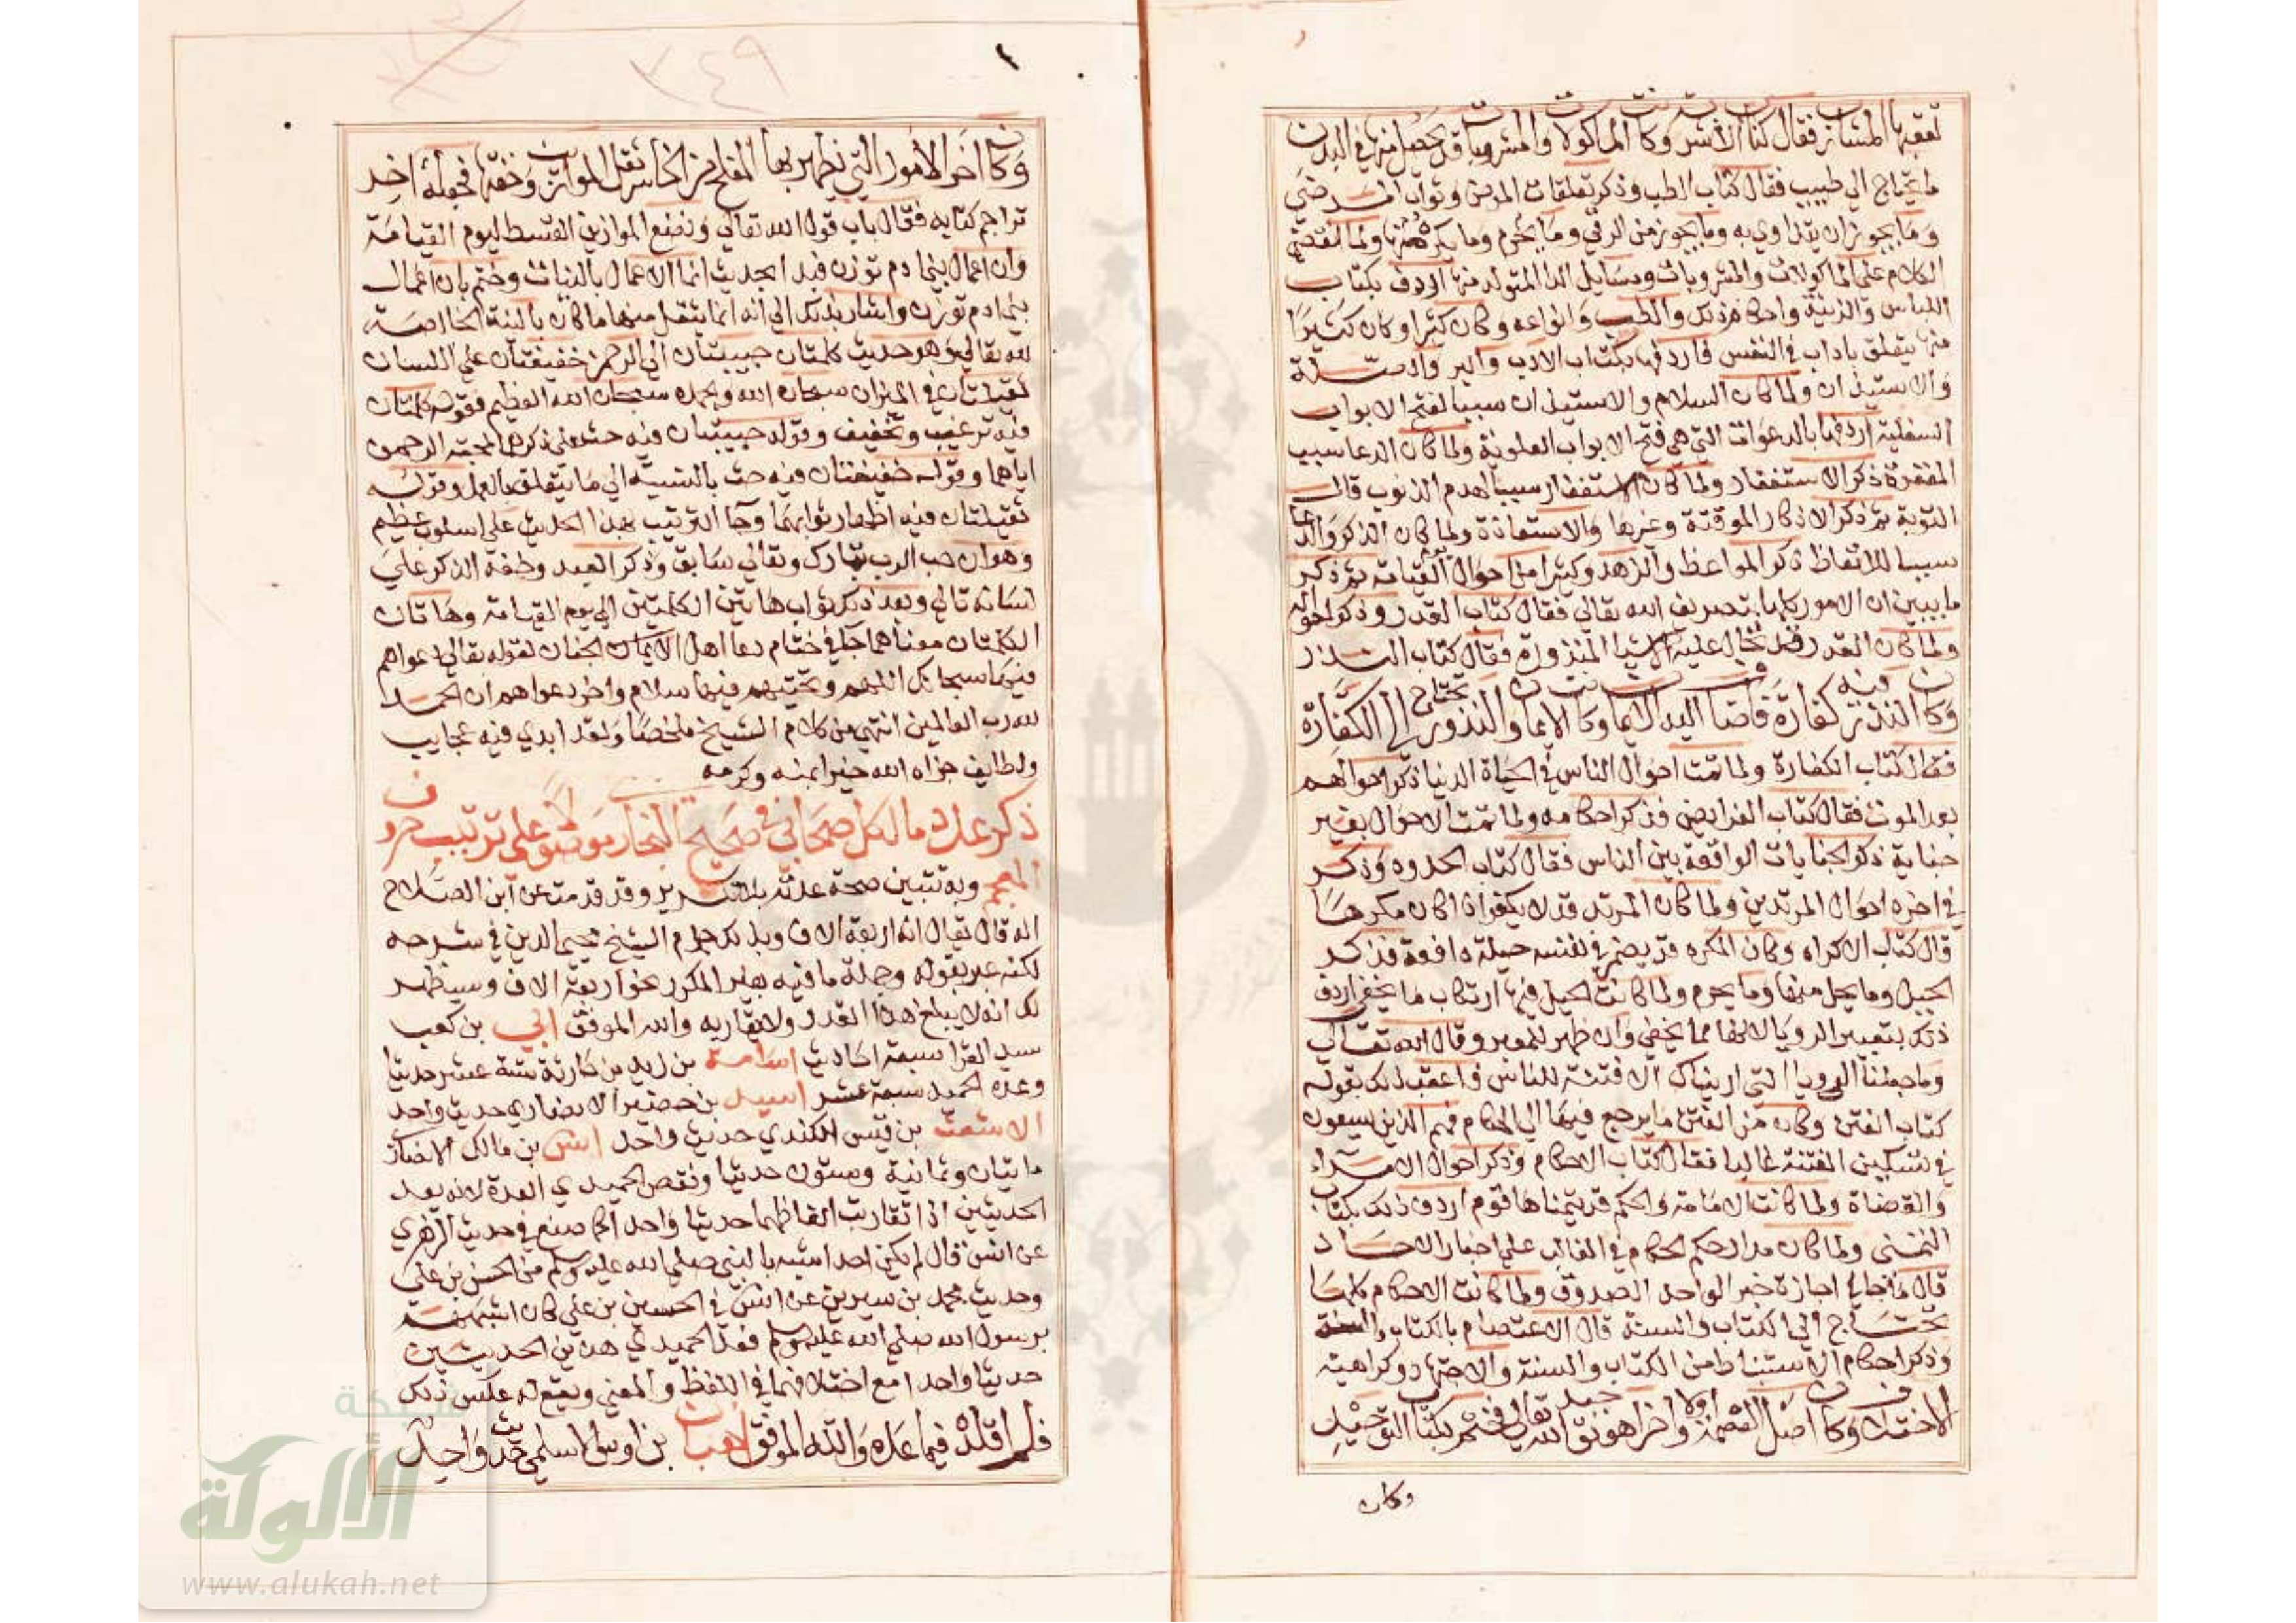 تعقبها المشارب فقال كتاب الاشربة وكانت الماكولات والمشروبات قد يحصل منها في البدن
ما يحتاج الي طبيب فقال كتاب الطب وذكر تعلقات المرض وثواب المرضي
وما يجوز ان يتداوي به وما يجوز من الرقي وما يحرم وما يكره منها ولما انقضي
الكلام علي الماكولات والمشروبات وما المتولد منها اردف بكتاب
اللباس والزينة واحكام ذلك والطيب وانواعه وكان كثيرا وكان كثيرا
منها يتعلق باداب في النفس فاردفها بكتاب الادب والبر والصلة
والاستيذان ولما كان السلام والاستيذان سببا لفتح الابواب
السفلية اردفها بالدعوات التي هي فتح الابواب العلوية ولما كان الدعا سبب
المغفرة ذكر الاستغفار ولما كان الاستغفار سببا لهدم الذنوب قال
التوبة ثم ذكر الاذكار الموقتة وغيرها والاستعاذة ولما كان الذكر والدعا
سببا للاتعاظ ذكر المواعظ والزهد وكثيرا من احوال يوم القيامة ثم ذكر
ما يبين ان الامور كلها بتصريف الله تعالي فقال كتاب القدر وذكر احواله
ولما كان القدر قد تحال عليه الاشيا المنذورة فقال كتاب النذر
وكان النذر فيه كفارة فاضاف اليه الايمان وكانت الايمان والنذور تحتاج الي الكفارة
فقال كتاب الكفارة ولما تمت احوال الناس في الحياة الدنيا ذكر احوالهم
بعد الموت فقال كتاب الفرايض فذكر احكامه ولما تمت الاحوال بغير
جناية ذكر الجنايات الواقعة بين الناس فقال كتاب الحدود وذكر
في اخره احوال المرتدين ولما كان المرتد قد لا يكفر اذا كان مكرها
قال كتاب الاكراه وكان المكره قد يضمر في نفسه حيلة دافعة فذكر
الحيل وما يحل منها وما يحرم ولما كانت الحيل فيها ارتكاب ما يخفي اردف
ذلك بتعبير الرويا لانها مما يخفي وان ظهر للمعبر وقال الله تعالي
وما جعلنا الرويا التي اريناك الا فتنة للناس فاعقب ذلك بقوله
كتاب الفتن وكان من الفتن ما يرجع فيها الي الحكام فهم الذين يسعون
في تسكين الفتنة غالبا فقال كتاب الاحكام وذكر احوال الامراء
والقضاة ولما كانت الامامة والحكم قد يتمناها قوم اردف ذلك بكتاب
التمني ولما كان مدار حكم الحكام في الغالب علي اخبار الاحاد
قال ما جا في اجازة خبر الواحد الصدوق ولما كانت الاحكام كلها
تحتاج الي الكتاب والسنة قال الاعتصام بالكتاب والسنة
وذكر احكام الاستنباط من الكتاب والسنة والاجتهاد وكراهية
الاختلاف وكان اصل العصمة اولا واخرا هو توحيد الله تعالي فختم بكتاب التوحيد
وكان
٣٤٩
وكان اخر الامور التي يظهر بها المفلح من الخاسر ثقل الموازين وخفتها فجعله اخر
تراجم كتابه فقال باب قول الله تعالي ونضع الموازين القسط ليوم القيامة
وان اعمال بني ادم توزن فبدا بحديث انما الاعمال بالنيات وختم بان اعمال
بني ادم توزن واشار بذلك الي انه انما يتقبل منها ما كان بالنية الخالصة
لله تعالي وهو حديث كلمتان حبيبتان الي الرحمن خفيفتان علي اللسان
ثقيلتان في الميزان سبحان الله وبحمده سبحان الله العظيم فقوله كلمتان
فيه ترغيب وتخفيف وقوله حبيبتان فيه حث علي ذكرهما لمحبة الرحمن
اياهما وقوله خفيفتان فيه حث بالنسبة الي ما يتعلق بالعمل وقوله
ثقيلتان فيه اظهار ثوابهما وجا الترتيب بهذا الحديث علي اسلوب عظيم
وهو ان حب الرب تبارك وتعالي سابق وذكر العبد وخفة الذكر علي
لسانه تالي وبعد ذكر ثواب هاتين الكلمتين الي يوم القيامة وهاتان
الكلمتان معناهما جا في ختام دعا اهل الايمان الجنان لقوله تعالي دعواهم
فيها سبحانك اللهم وتحيتهم فيها سلام واخر دعواهم ان الحمد
لله رب العالمين انتهي من كلام الشيخ ملخصا ولقد ابدي فيه عجايب
ولطايف جزاه الله خيرا بمنه وكرمه
ذكر عدد ما لكل صحابي في صحيح البخاري موصولا علي ترتيب حروف
المعجم وبه تتبين صحة عدته بلا تكرير وقد قدمت عن ابن الصلاح
انه قال يقال انه اربعة الاف وبذلك جزم الشيخ محيي الدين في شرحه
لكنه عبر بقوله وجملة ما فيه بغير المكرر نحو اربعة الاف وسيظهر
لك انه لا يبلغ هذا القدر ولا يقاربه والله الموفق ابي بن كعب
سيد القرا سبعة احاديث اسامة بن زيد بن حارثة ستة عشر حديثا
وعده الحميدي سبعة عشر اسيد بن حضير الانصاري حديث واحد
الاشعث بن قيس الكندي حديث واحد انس بن مالك الانصاري
مايتان وثمانية وستون حديثا ونقص الحميدي العدة لانه يعد
الحديثين اذا تقاربت الفاظهما حديثا واحدا كما صنع في حديث الزهري
عن انس قال لم يكن احد اشبه بالنبي صلي الله عليه وسلم من الحسن بن علي
وحديث محمد بن سيرين عن انس في الحسين بن علي كان اشبههم
برسول الله صلي الله عليه وسلم فعد الحميدي هذين الحديثين
حديثا واحدا مع اختلافهما في اللفظ والمعني ويقع له عكس ذلك
فلم اقلده فيما عده والله الموفق اهبان بن اوس الاسلمي حديث واحد
شبكة
الألوكة
www.alukah.net